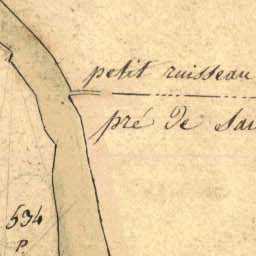 petit ruisseau
pré de
534
P.